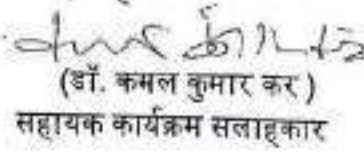 (डॉ. कमल कुमार कर)
सहायक कार्यक्रम सलाहकार